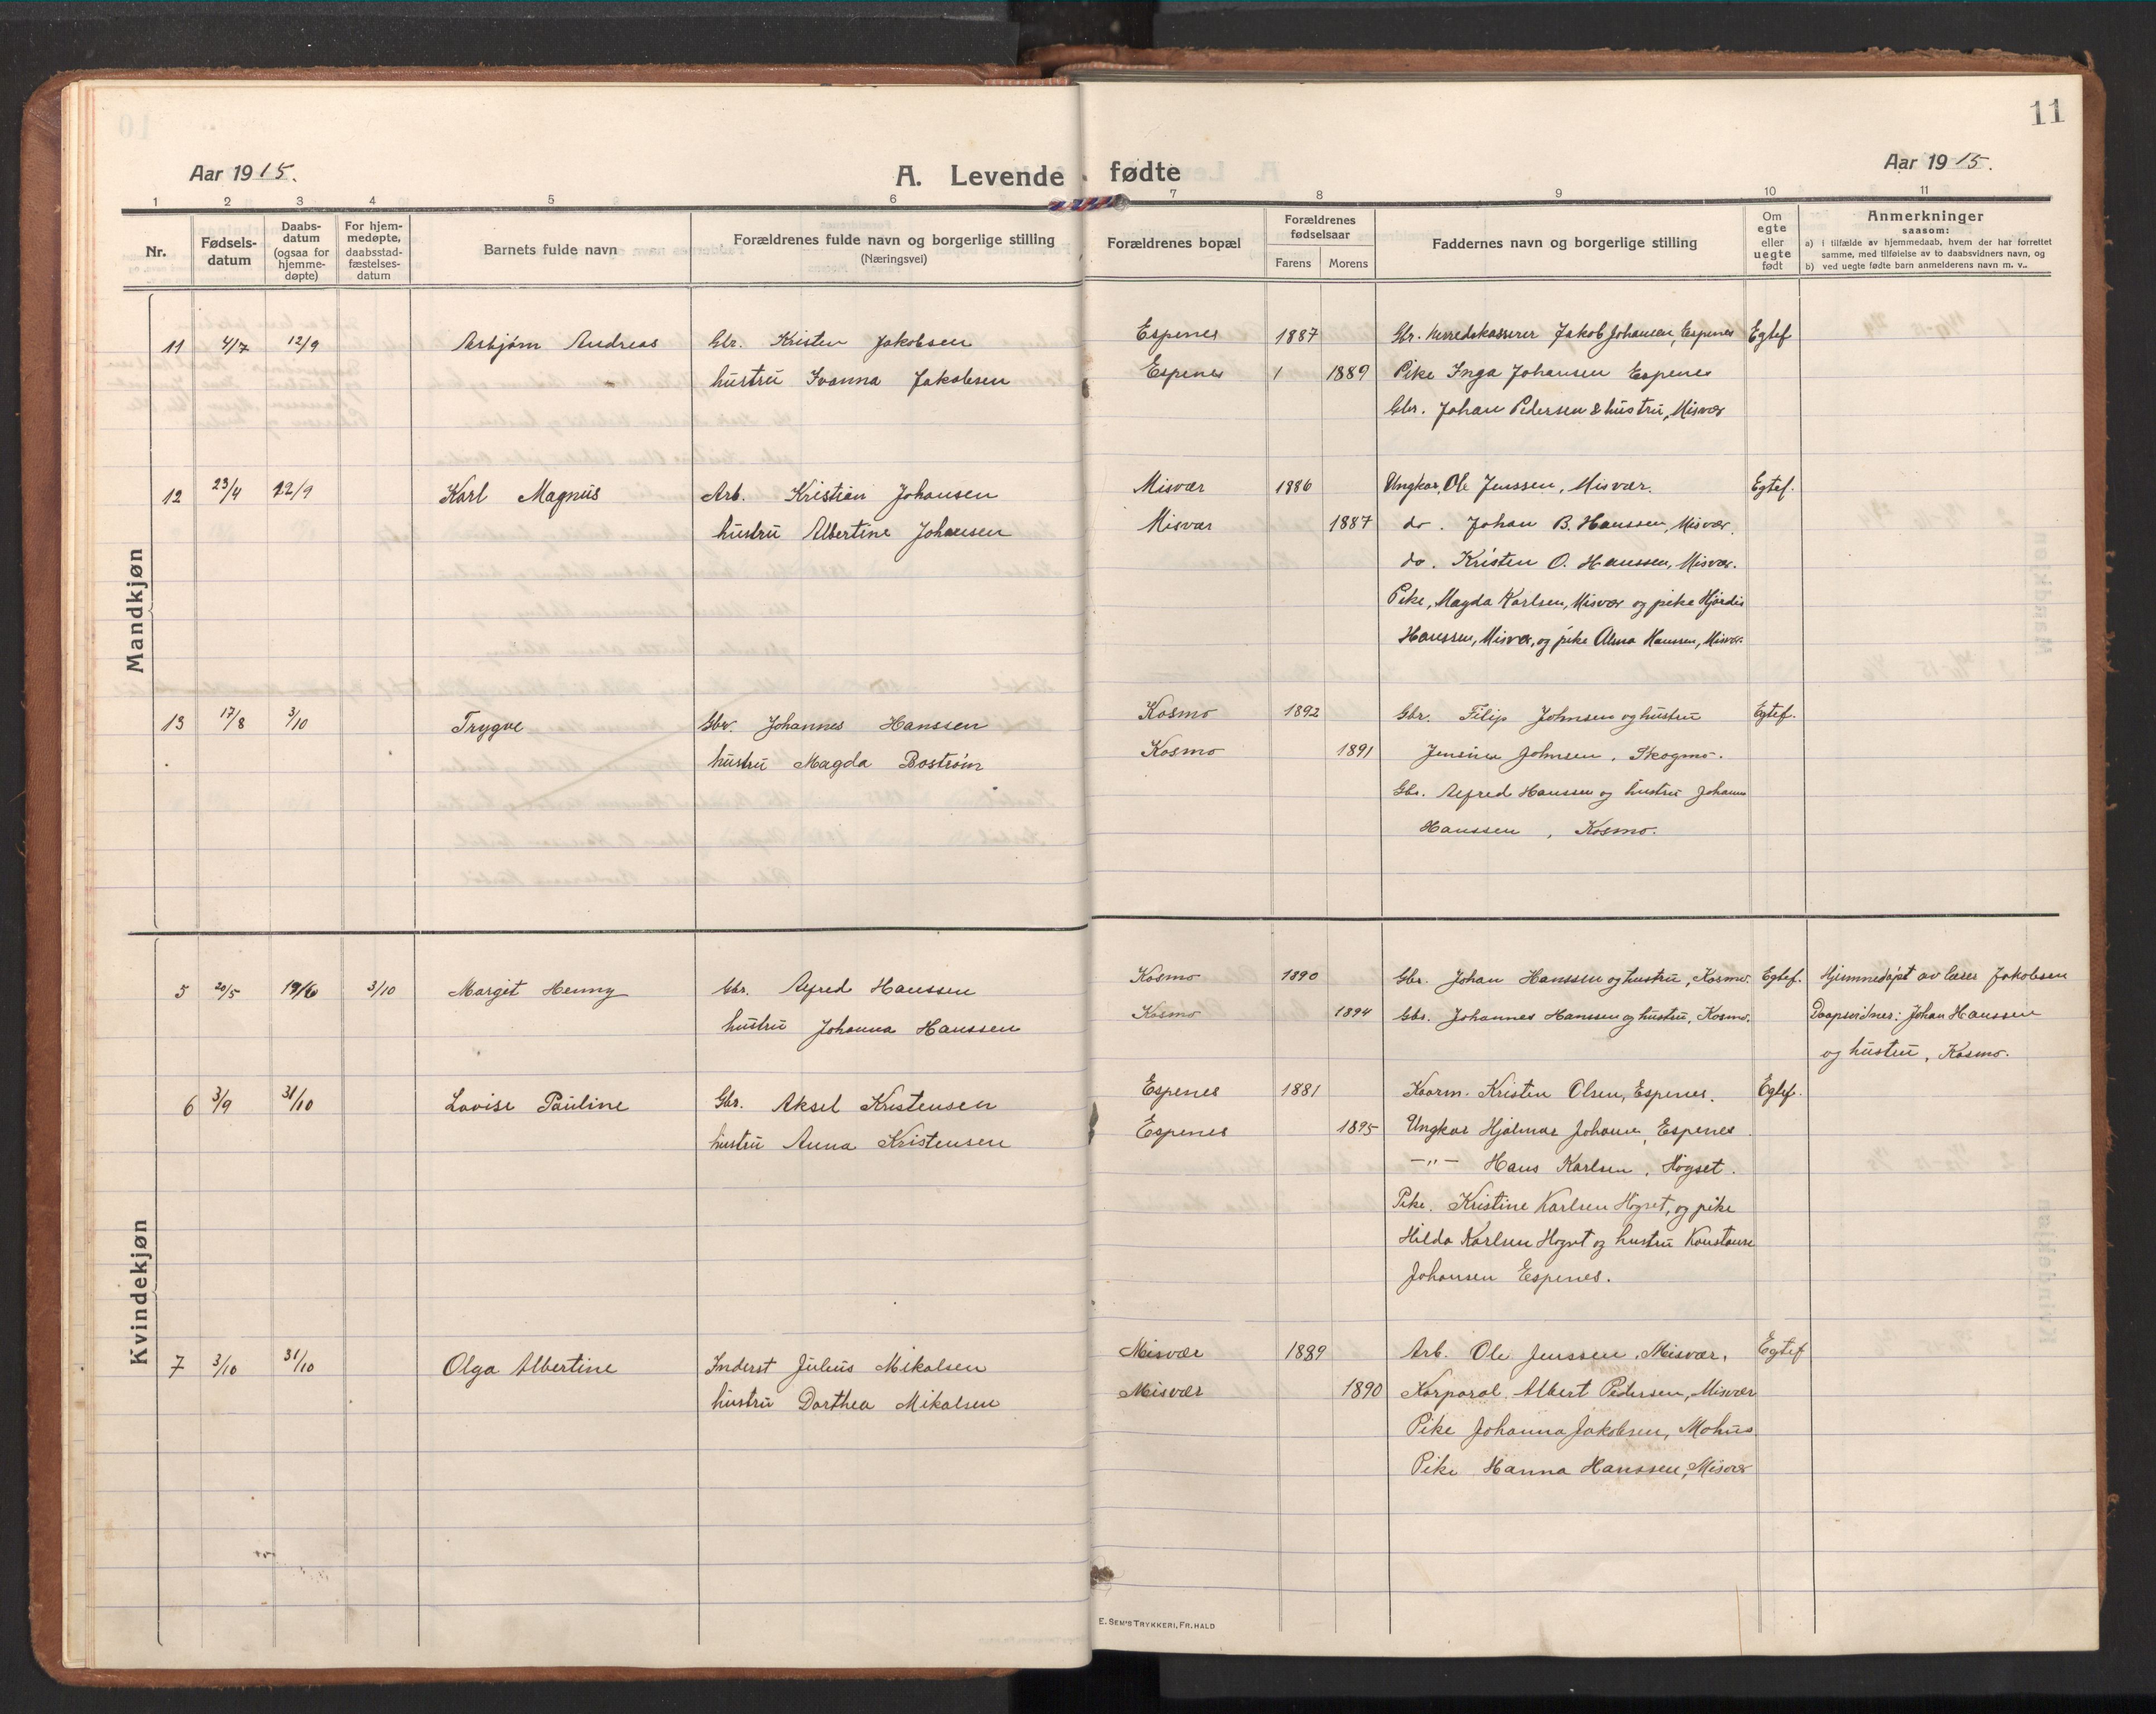 11
Aar 1915.
A. Levende fødte
Aar 1915.
1 2 3 4 5 6 7 8 9 10 11
Nr.
Fødselsdatum
Daabsdatum (ogsaa for hjemmedøpte)
For hjemmedøpte, daabsstadfæstelsesdatum
Barnets fulde navn
Forældrenes fulde navn og borgerlige stilling
(Næringsvei)
Forældrenes bopæl
Forældrenes fødselsaar
Farens Morens
Faddernes navn og borgerlige stilling
Om egte eller uegte født
Anmerkninger
saasom:
a) i tilfælde av hjemmedaab, hvem der har forrettet
samme, med tilføielse av to daabsvidners navn, og
b) ved uegte fødte barn anmelderens navn m. v..
Mandkjøn
11 4/7 12/9 Asbjørn Andreas Gbr. Kristen Jakobsen Espenes 1887 Gbr. herredskasserer Jakob Johansen, Espenes Egtef
hustru Ivanna Jakobsen Espenes 1889 Pike Inga Johansen Espenes
Gbr. Johan Pedersen & hustru, Misvær
12 23/4 12/9 Karl Magnus Arb. Kristian Johansen Misvær 1886 Ungkar, Ole Jenssen, Misvær. Egtef.
hustru Albertine Johansen Misvær 1887 do. Johan B. Hanssen, Misvær.
do. Kristen O. Hanssen, Misvær.
Pike, Magda Karlsen, Misvær og pike Hjørdis
Hanssen, Misvær, og pike Alma Hanssen, Misvær.
13 17/8 3/10 Trygve Gbr. Johannes Hanssen Kosmo 1892 Gbr. Filip Johnsen og hustru Egtef.
hustru Magda Bostrøm Kosmo 1891 Jensine Johnsen, Skogmo.
Gbr. Alfred Hanssen og hustru Johanna
Hanssen, Kosmo.
Kvindekjøn
5 20/5 19/6 3/10 Margit Henny Gbr. Alfred Hanssen Kosmo 1890 Gbr. Johan Hanssen og hustru, Kosmo. Egtef. Hjemmedøpt av lærer Jakobsen
hustru Johanna Hanssen Kosmo 1894 Gbr. Johannes Hanssen og hustru, Kosmo. Daapsvidner: Johan Hanssen
og hustru, Kosmo.
6 3/9 31/10 Lovise Pauline Gbr. Aksel Kristensen Espenes 1881 Kaarm. Kristen Olsen, Espenes. Egtef.
hustru Anna Kristensen Espenes 1895 Ungkar Hjalmar Johansen, Espenes.
—"— Hans Karlsen, Høgset.
Pike. Kristine Karlsen Høgset, og pike
Hilda Karlsen Høgset og hustru Konstanse
Johansen Espenes.
7 3/10 31/10 Olga Albertine Inderst Julius Mikalsen Misvær 1889 Arb. Ole Jenssen, Misvær. Egtef
hustru Dorthea Mikalsen Misvær 1890 Korporal Albert Pedersen, Misvær
Pike Johanna Jakobsen, Mohus
Pike Hanna Hanssen, Misvær
E. SEM'S TRYKKERI, FR. HALD